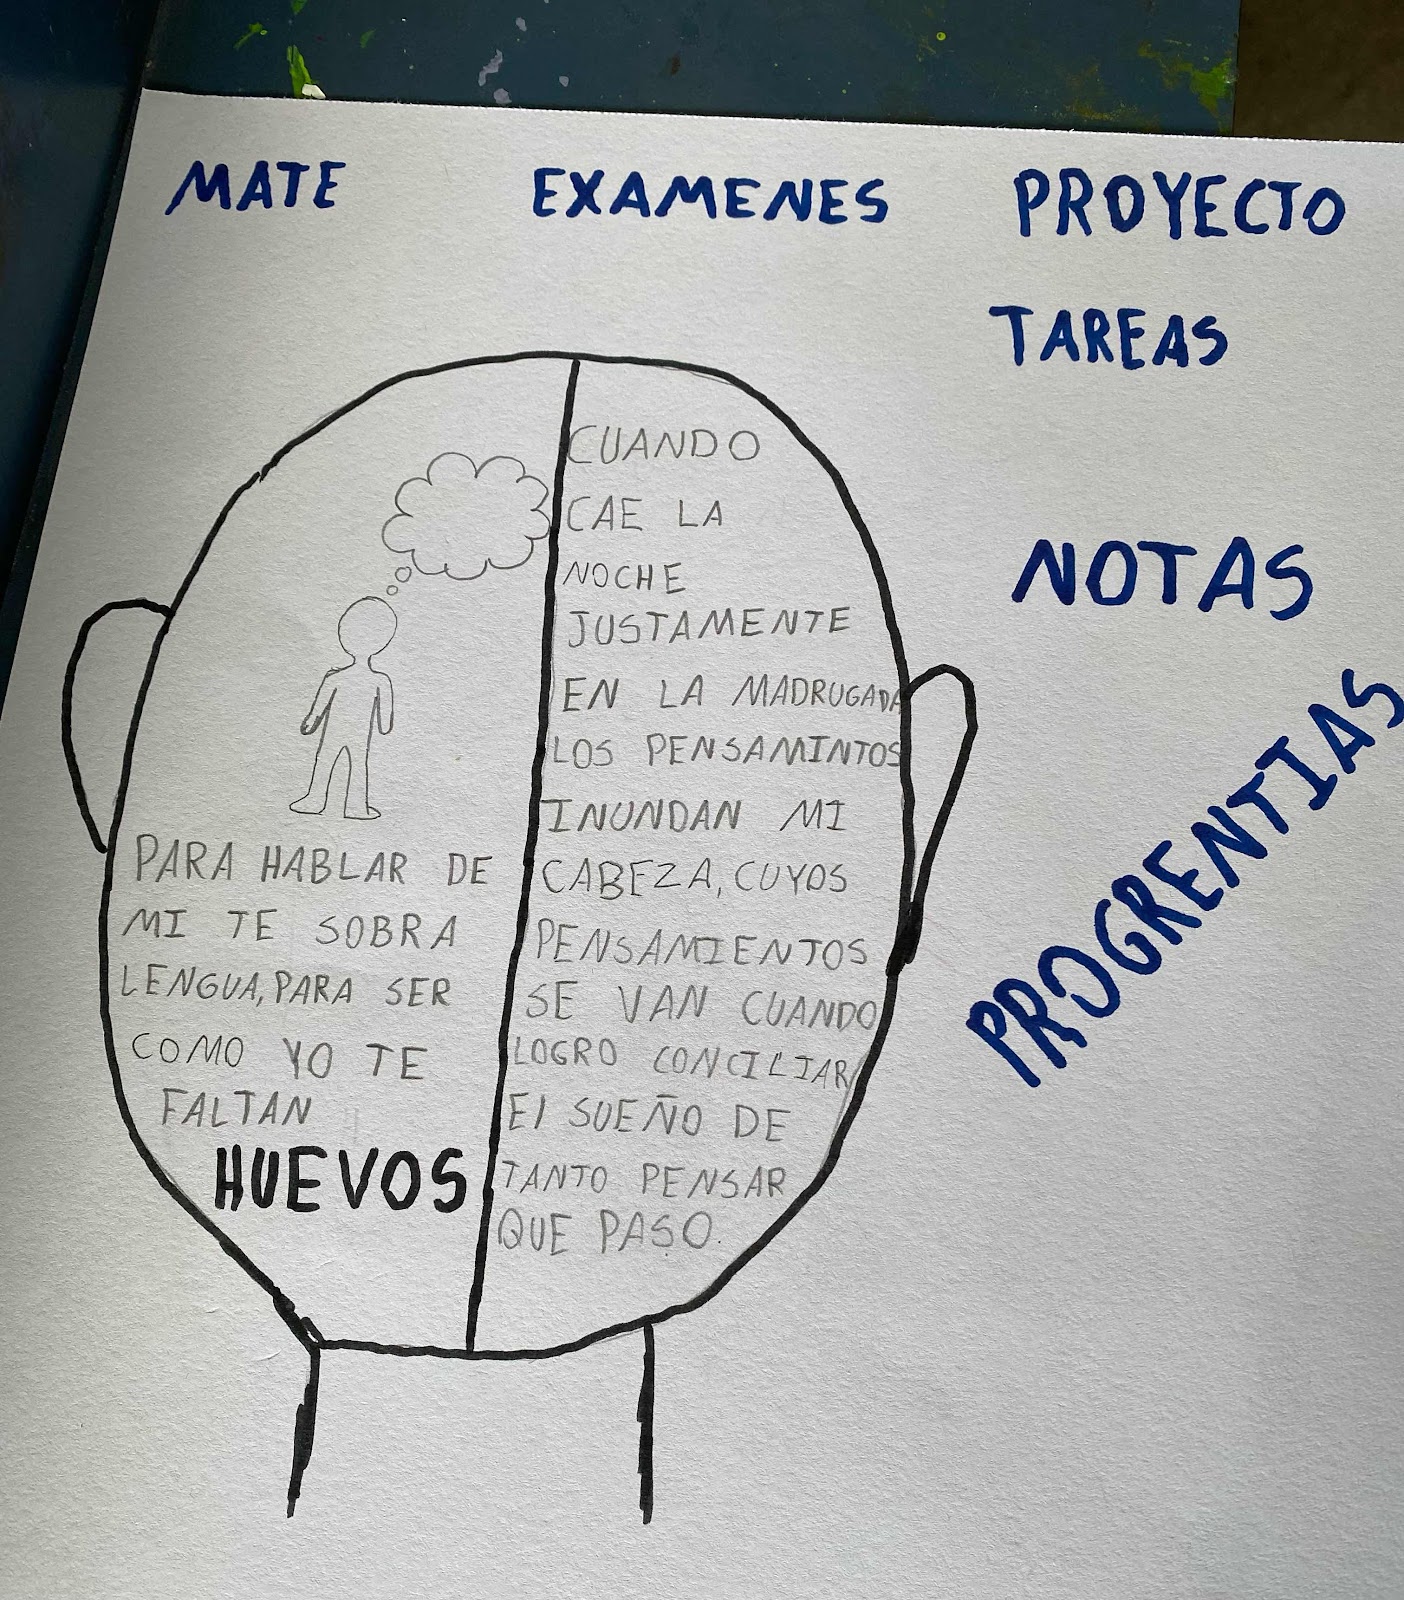 MATE
EXAMENES
PROYECTO
TAREAS
NOTAS
PROGRENTIAS
PARA HABLAR DE
MI TE SOBRA
LENGUA, PARA SER
COMO YO TE
FALTAN
HUEVOS
CUANDO
CAE LA
NOCHE
JUSTAMENTE
EN LA MADRUGADA
LOS PENSAMINTOS
INUNDAN MI
CABEZA, CUYOS
PENSAMIENTOS
SE VAN CUANDO
LOGRO CONCILIAR
El SUEÑO DE
TANTO PENSAR
QUE PASO.